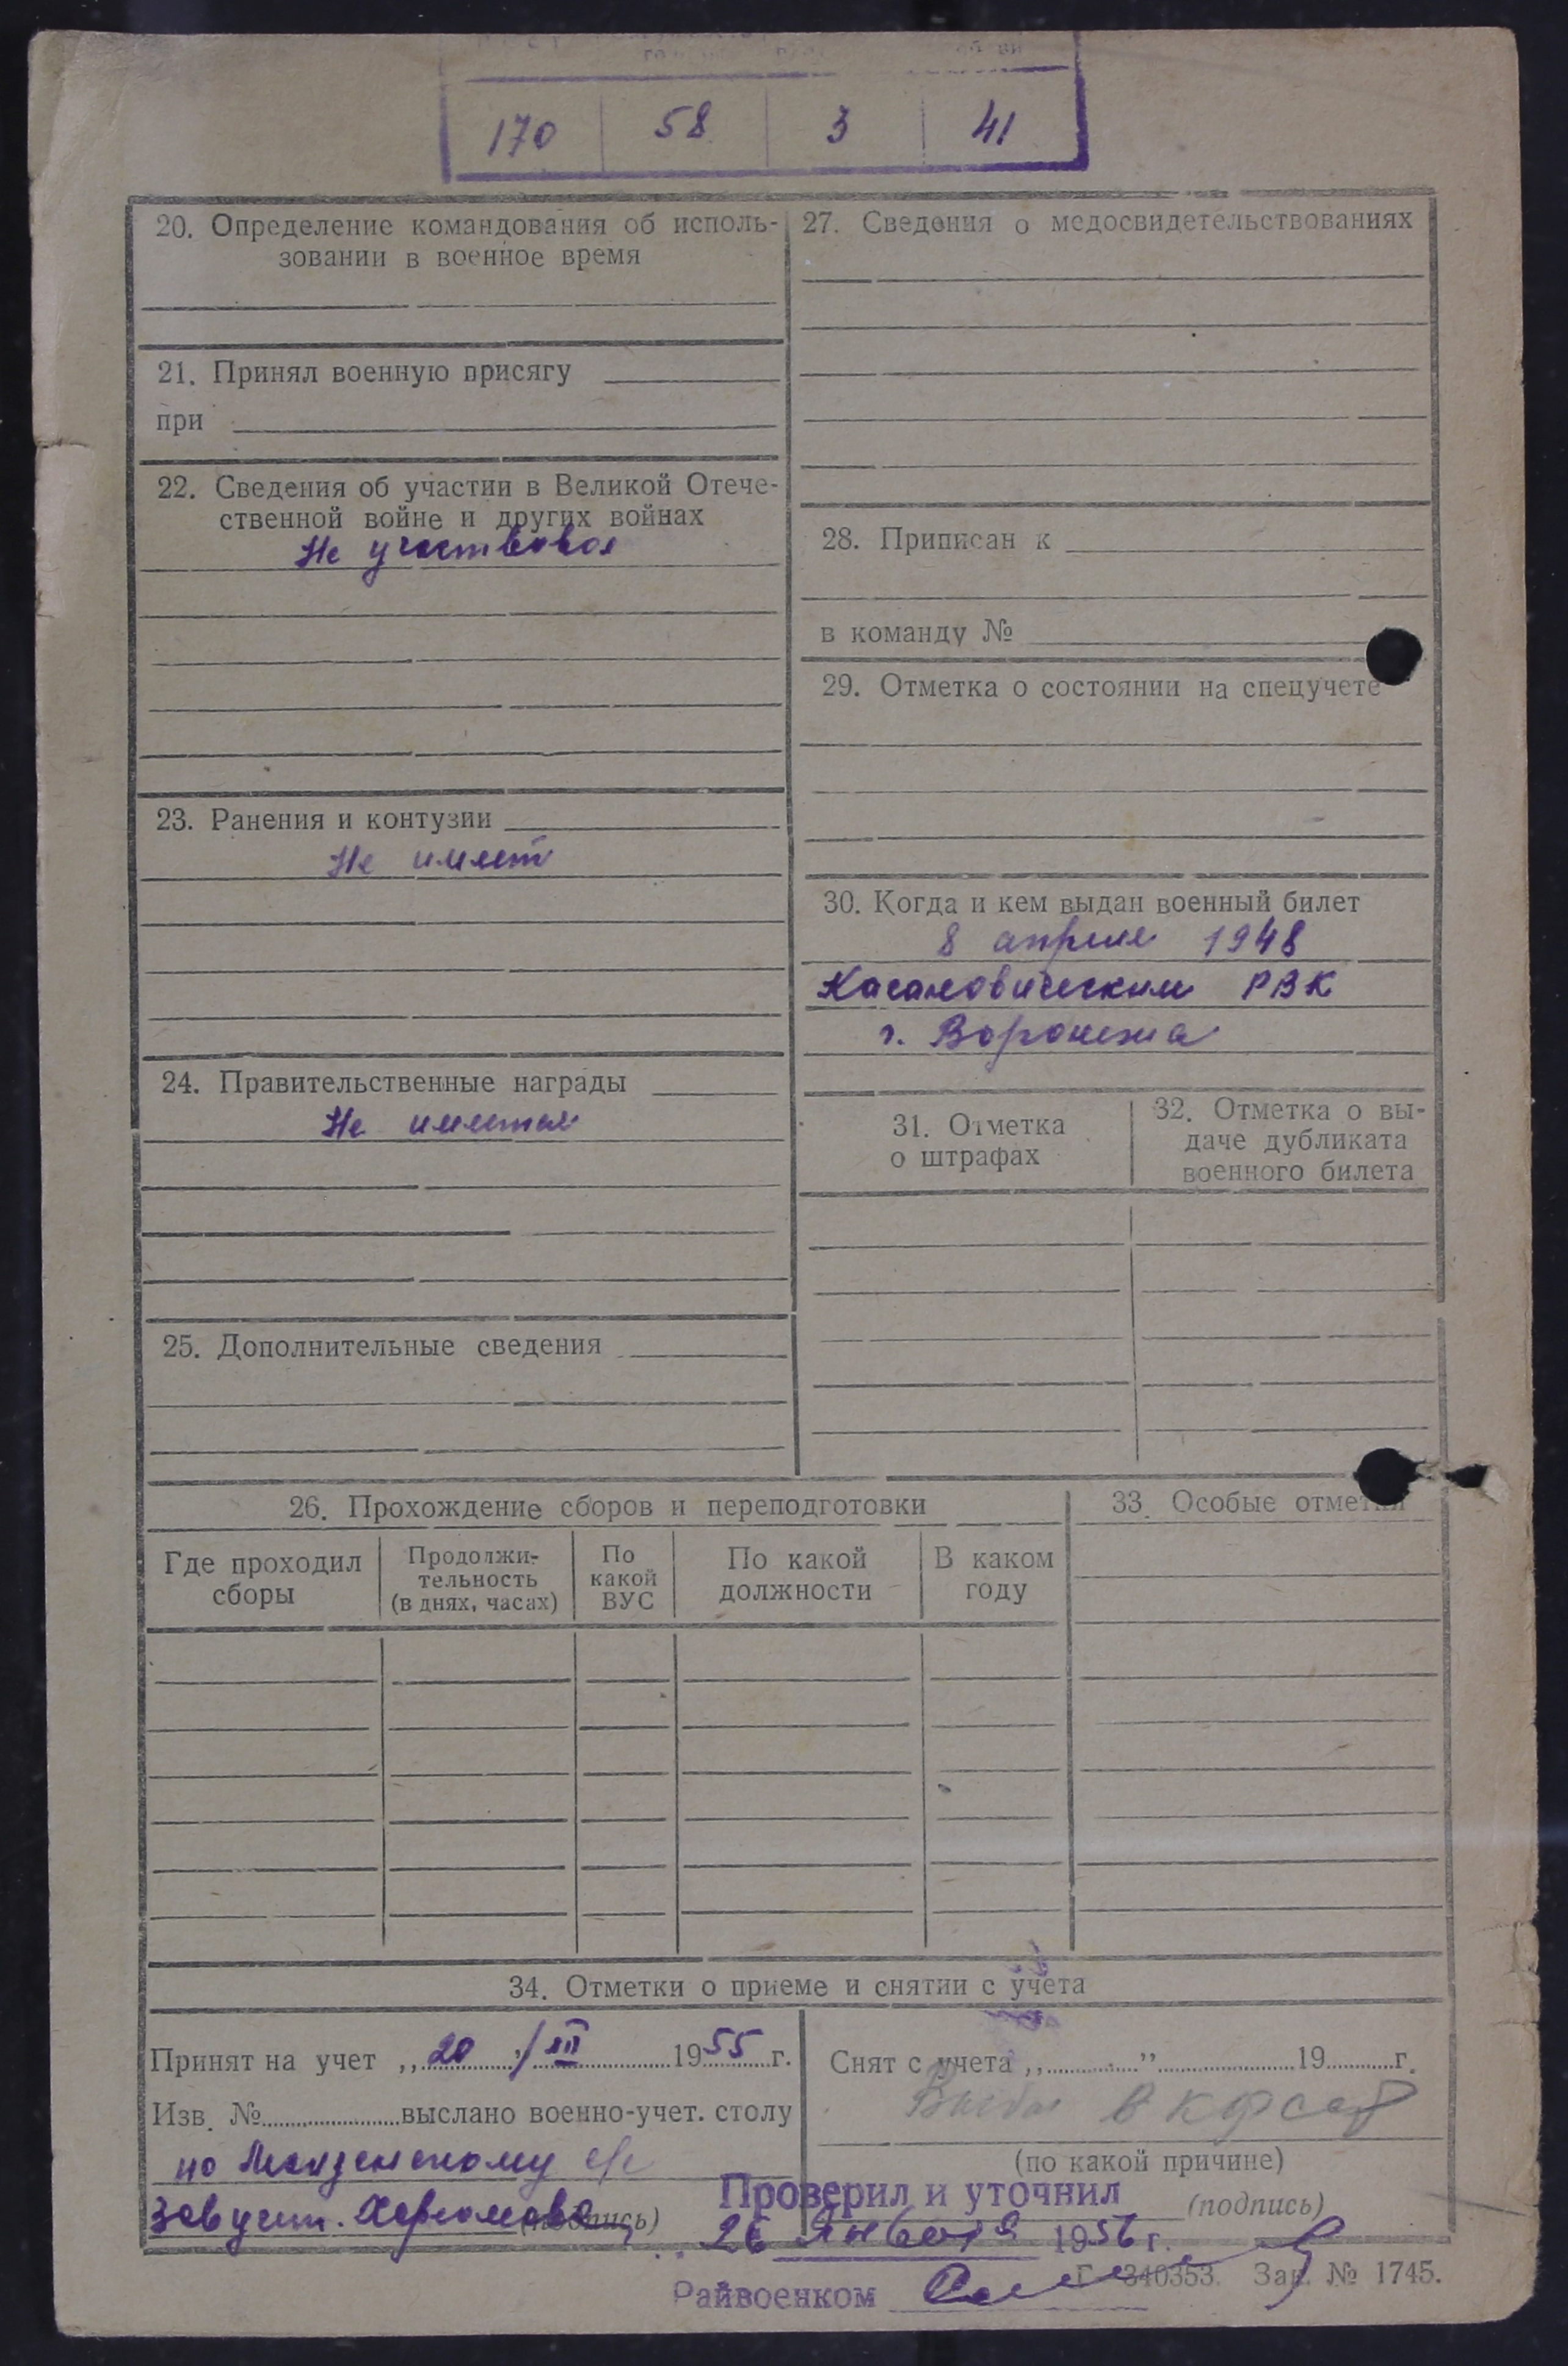 170 58 3 41
20. Определение командования об исполь-
зовании в военное время
21. Принял военную присягу
при
22. Сведения об участии в Великой Отече-
ственной войне и других войнах
Не участвовал
23. Ранения и контузии
Не имеет
24. Правительственные награды
Не имеет
25. Дополнительные сведения
27. Сведения о медосвидетельствованиях
28. Приписан к
в команду №
29. Отметка о состоянии на спецучете
30. Когда и кем выдан военный билет
8 апреля 1948
Кагановическим РВК
г. Воронежа
31. Отметка
о штрафах
32. Отметка о вы-
даче дубликата
военного билета
26. Прохождение сборов и переподготовки
Где проходил
сборы
Продолжи-
тельность
(в днях, часах)
По
какой
ВУС
По какой
должности
В каком
году
33. Особые отметки
34. Отметки о приеме и снятии с учета
Принят на учет „20"/III 1955 г.
Изв. № выслано военно-учет. столу
по с/с
Зав учет.
(подпись)
Снят с учета „ " 19 г.
Выбыл в
(по какой причине)
(подпись)
Проверил и уточнил
26 Января 1956 г.
Райвоенком
Г-340353. Зак. № 1745.